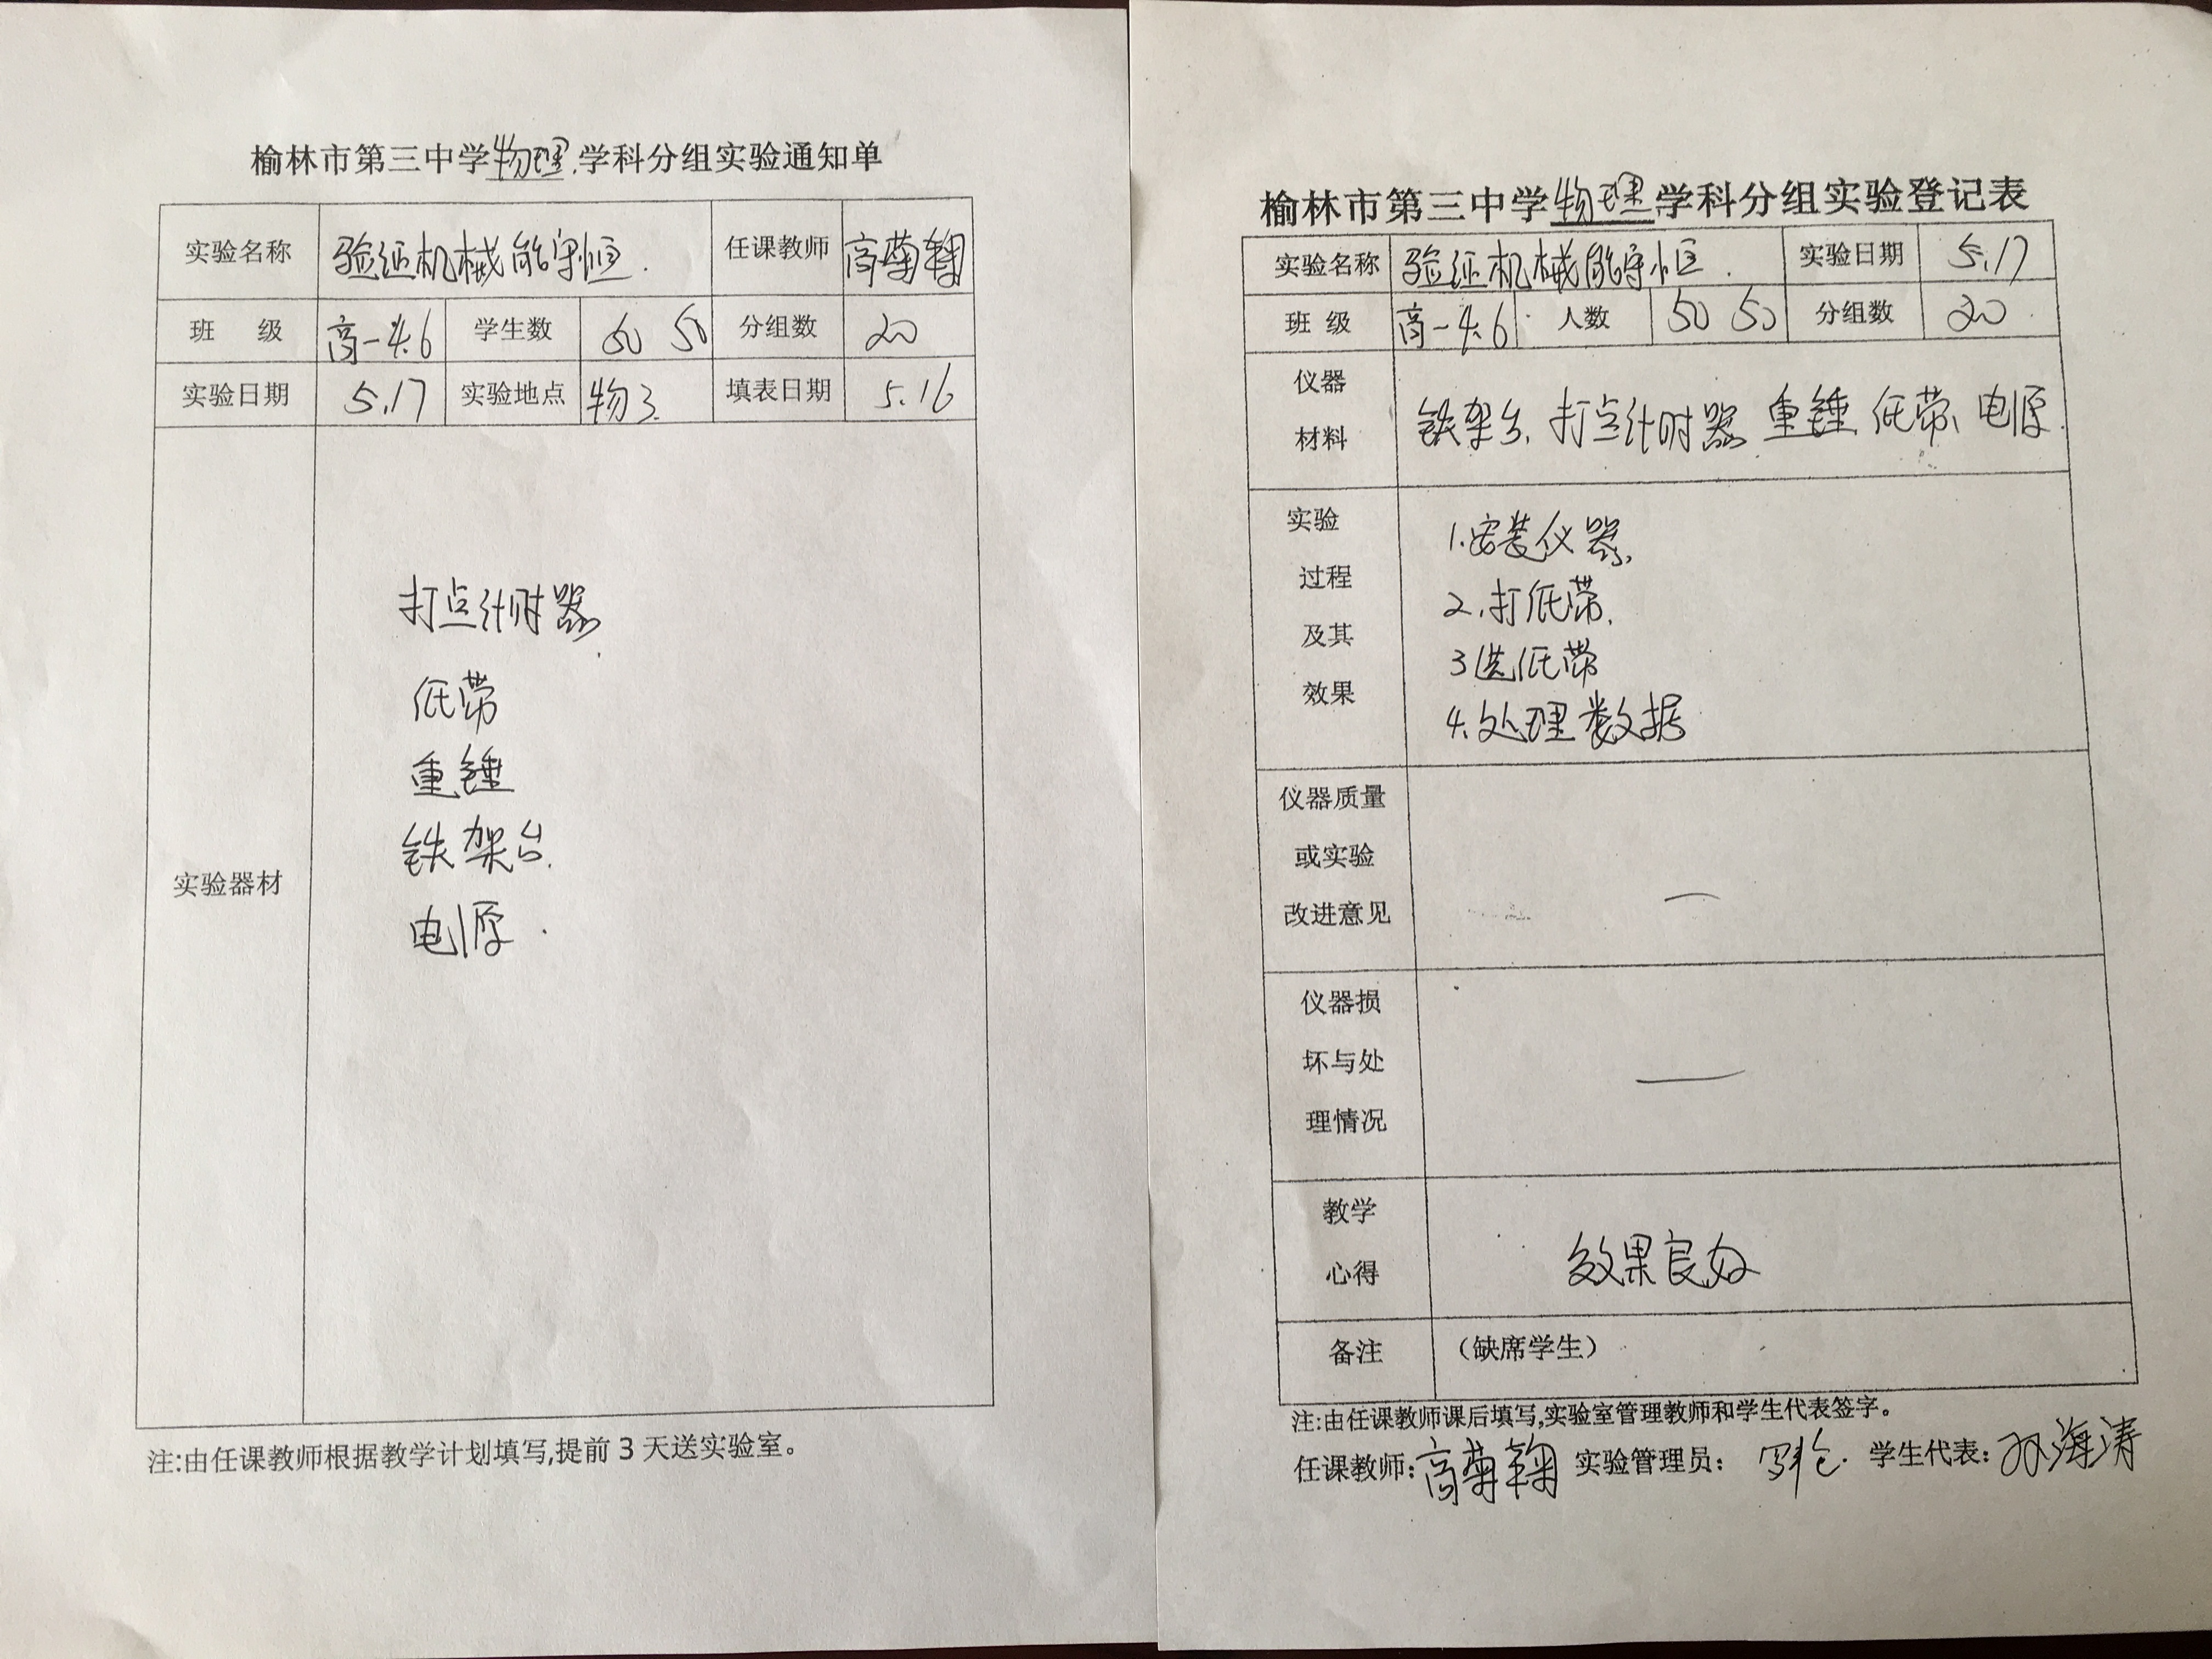 榆林市第三中学物理学科分组实验通知单
实验名称 验证机械能守恒. 任课教师 高菊鞠
班 级 高一4.6 学生数 50 50 分组数 20
实验日期 5.17 实验地点 物3 填表日期 5.16
实验器材
打点计时器
纸带
重锤
铁架台
电源
注:由任课教师根据教学计划填写,提前3天送实验室。
榆林市第三中学物理学科分组实验登记表
实验名称 验证机械能守恒. 实验日期 5.17
班 级 高一4.6 人数 50 50 分组数 20
仪器
材料
铁架台、打点计时器 重锤、纸带、电源
实验
过程
及其
效果
1.安装仪器
2.打纸带
3选纸带
4.处理数据
仪器质量
或实验
改进意见
—
仪器损
坏与处
理情况
—
教学
心得
效果良好
备注 (缺席学生)
注:由任课教师课后填写,实验室管理教师和学生代表签字。
任课教师:高菊鞠 实验管理员: 学生代表:海涛